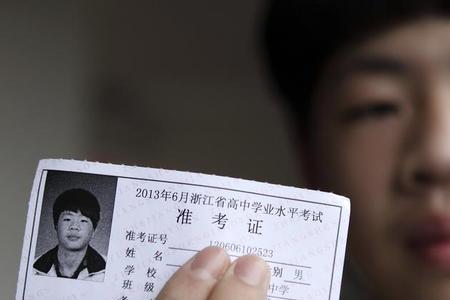 2013年6月浙江省高中学业水平考试
准考证
准考证号 120606102523
姓名
学校 别 男
班级 中学